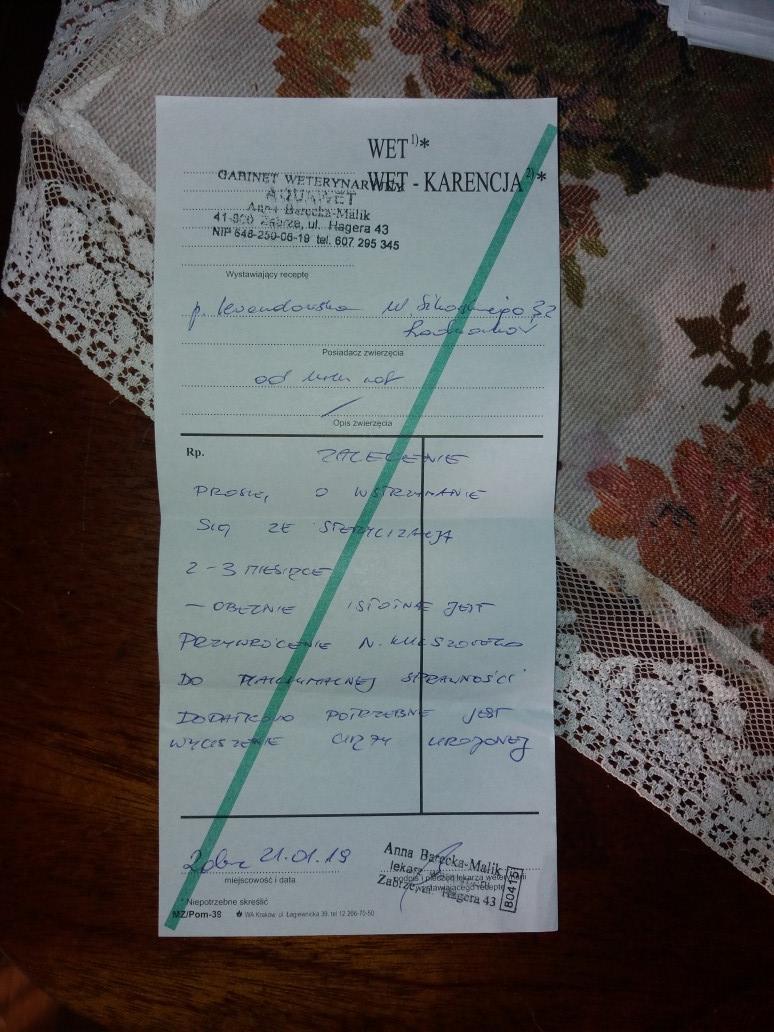 WET 1)*
WET - KARENCJA 2)*
GABINET WETERYNARYJNY
AQUAWET
Anna Barecka-Malik
41-800 Zabrze, ul. Hagera 43
NIP 648-250-06-19 tel. 607 295 345
Wystawiający receptę
p. 32
Posiadacz zwierzęcia
od
Opis zwierzęcia
Rp. ZALECENIE
PROSZĘ O WSTRZYMANIE
SIĘ ZE STERYLIZACJĄ
2-3 MIESIĄCE
- OBECNIE ISTOTNE JEST
PRZYWRÓCENIE N. KULSZOWEGO
DO MAKSYMALNEJ SPRAWNOŚCI
DODATKOWO POTRZEBNE JEST
WYCISZENIE CIĄŻY UROJONEJ
21.01.19
miejscowość i data
Anna Barecka-Malik
lekarz
Zabrze, ul. Hagera 43
80415
podpis i pieczęć lekarza weterynarii
wystawiającego receptę
* Niepotrzebne skreślić
MZ/Pom-38 WA Kraków, ul. Łagiewnicka 39, tel 12 266-70-50